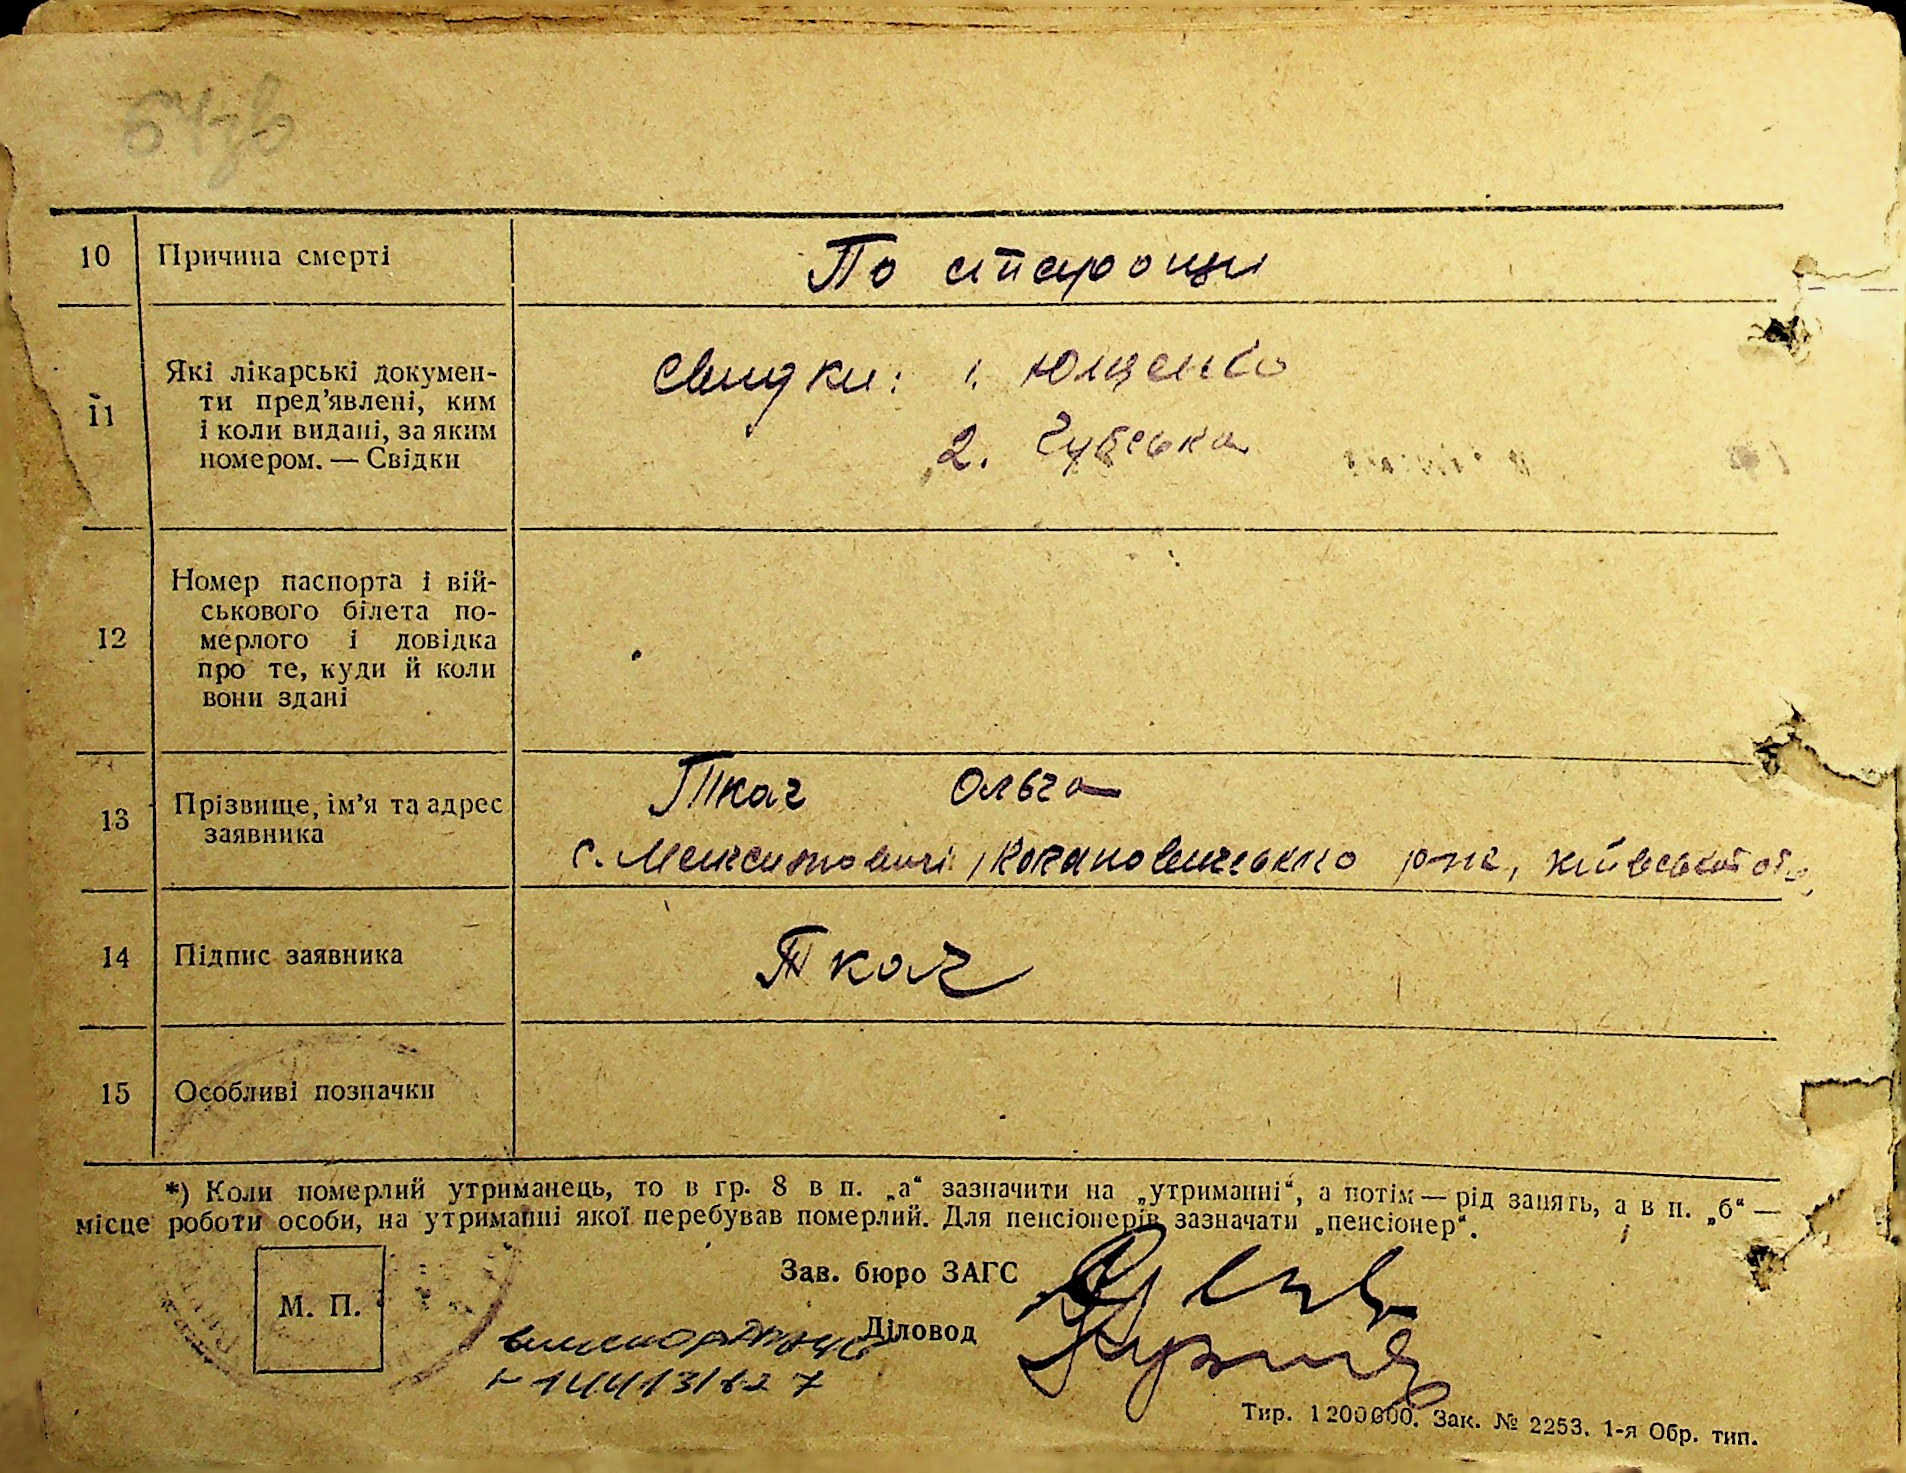 10 Причина смерті По старощи
11 Які лікарські докумен-
ти пред’явлені, ким
і коли видані, за яким
номером. — Свідки
Свидки: 1. Ющенко
2. Чубська
12 Номер паспорта і вій-
ськового білета по-
мерлого і довідка
про те, куди й коли
вони здані
13 Прізвище, ім’я та адрес
заявника
Ткач Ольга
с. Кагановичського р-не, Київської
14 Підпис заявника Ткач
15 Особливі позначки
*) Коли померлий утриманець, то в гр. 8 в п. „а“ зазначити на „утриманні“, а потім — рід занять, а в п. „б“ —
місце роботи особи, на утриманні якої перебував померлий. Для пенсіонерів зазначати „пенсіонер“.
Зав. бюро ЗАГС
М. П.
Діловод
Тир. 1200000. Зак. № 2253. 1-я Обр. тип.